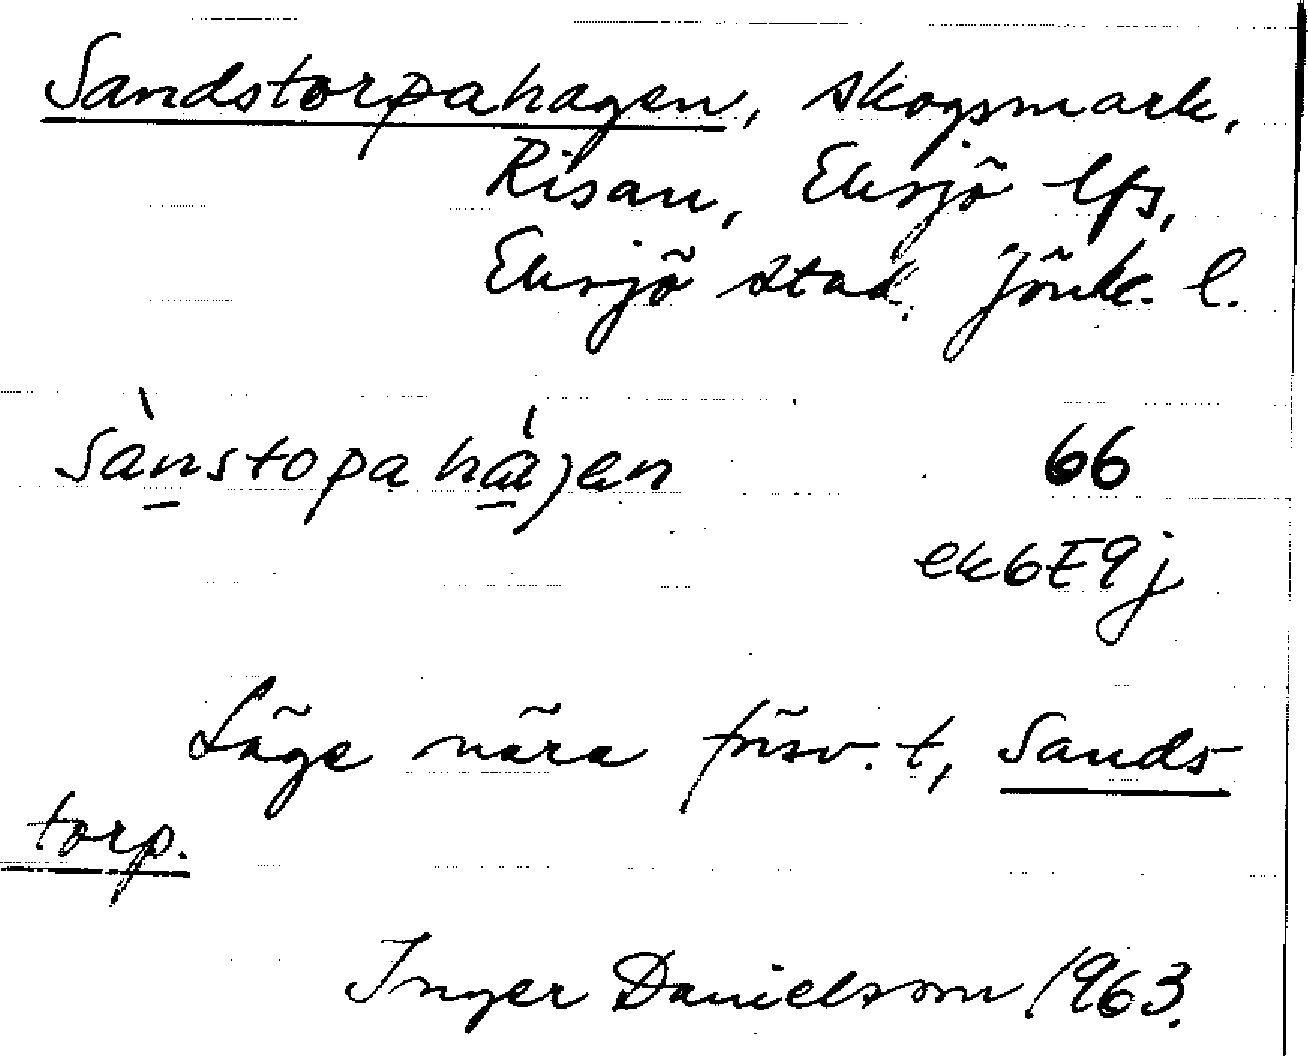 Sandstorpahagen, skogsmark,
Risan, Eksjö lfs,
Eksjö stad, Jönk. l.
sànstopahájen 66
ek6E9j
Läge nära försv. t, Sands
torp.
Inger Danielsson 1963.